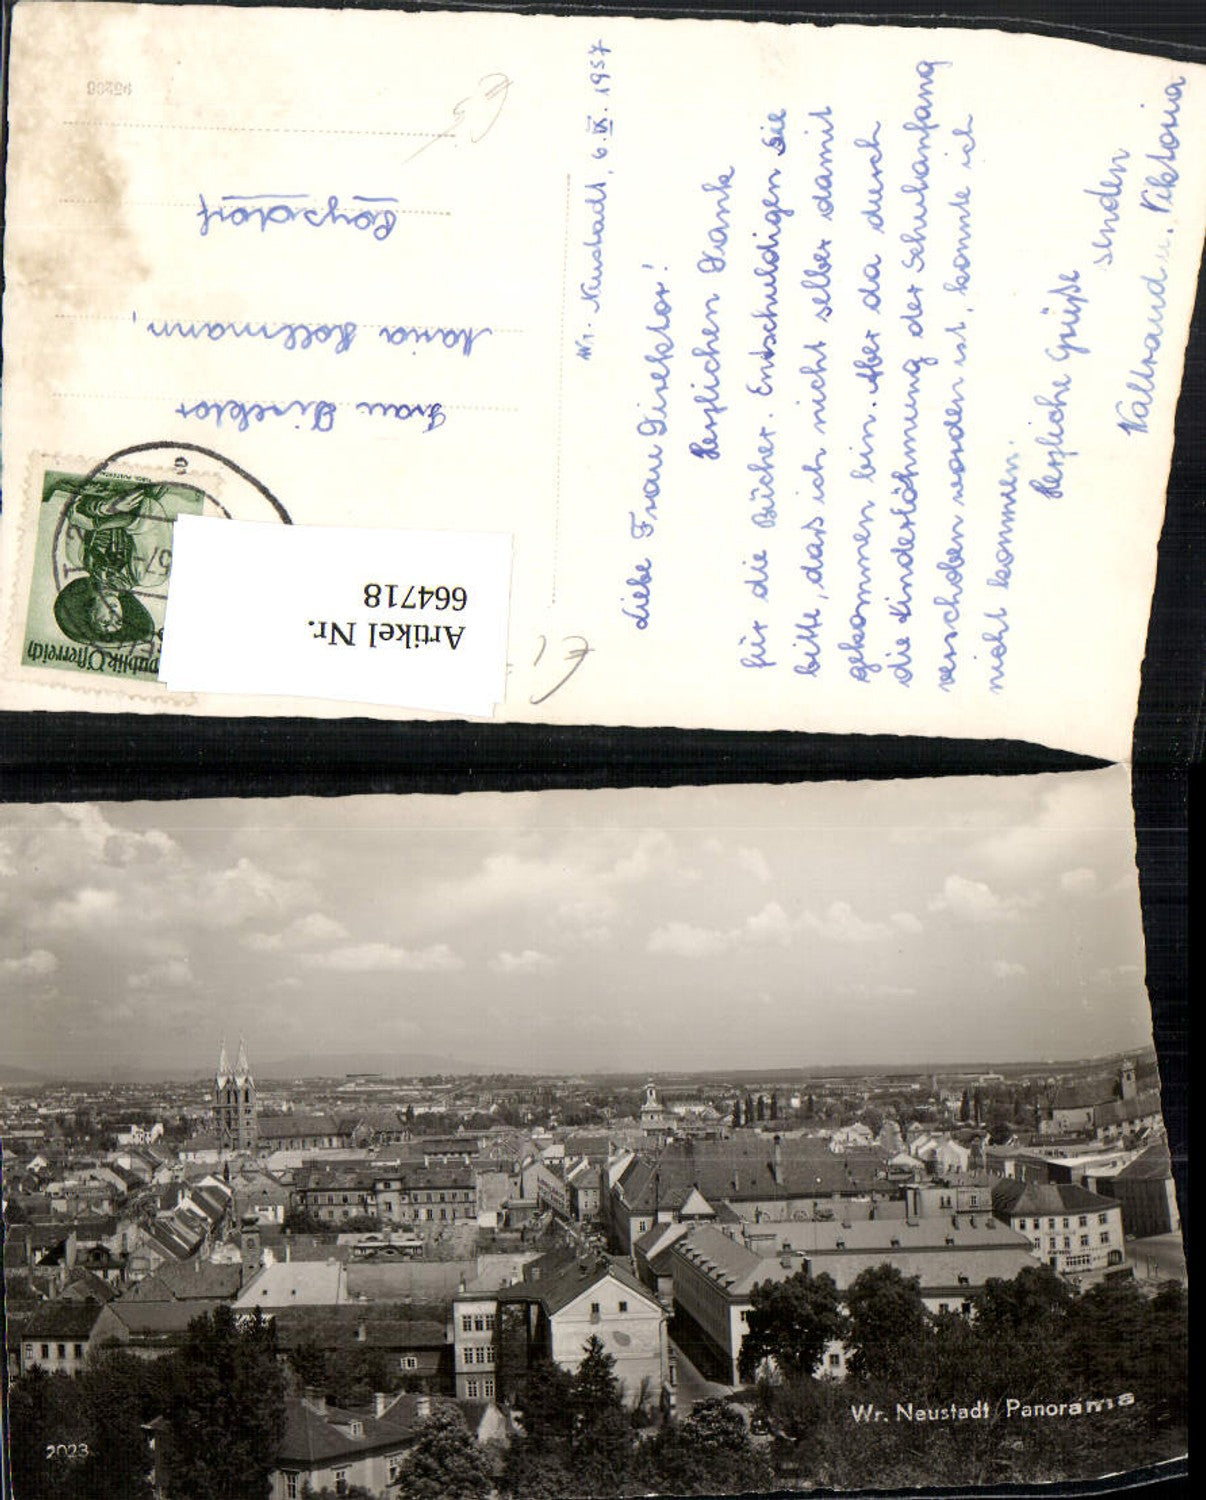 Wr. Neustadt, 6.IX.1957
Liebe Frau Direktor!
Herzlichen Dank
für die Bücher. Entschuldigen Sie
bitte, dass ich nicht selber damit
gekommen bin. Aber da durch
die Kinderlähmung der Schulanfang
verschoben worden ist, konnte ich
nicht kommen.
Herzliche Grüße
senden
Waltraud u. Viktoria
Frau Direktor
Maria Hollmann,
Loipsdorf
95286
publik Österreich
Artikel Nr.
664718
Wr. Neustadt / Panorama
2023